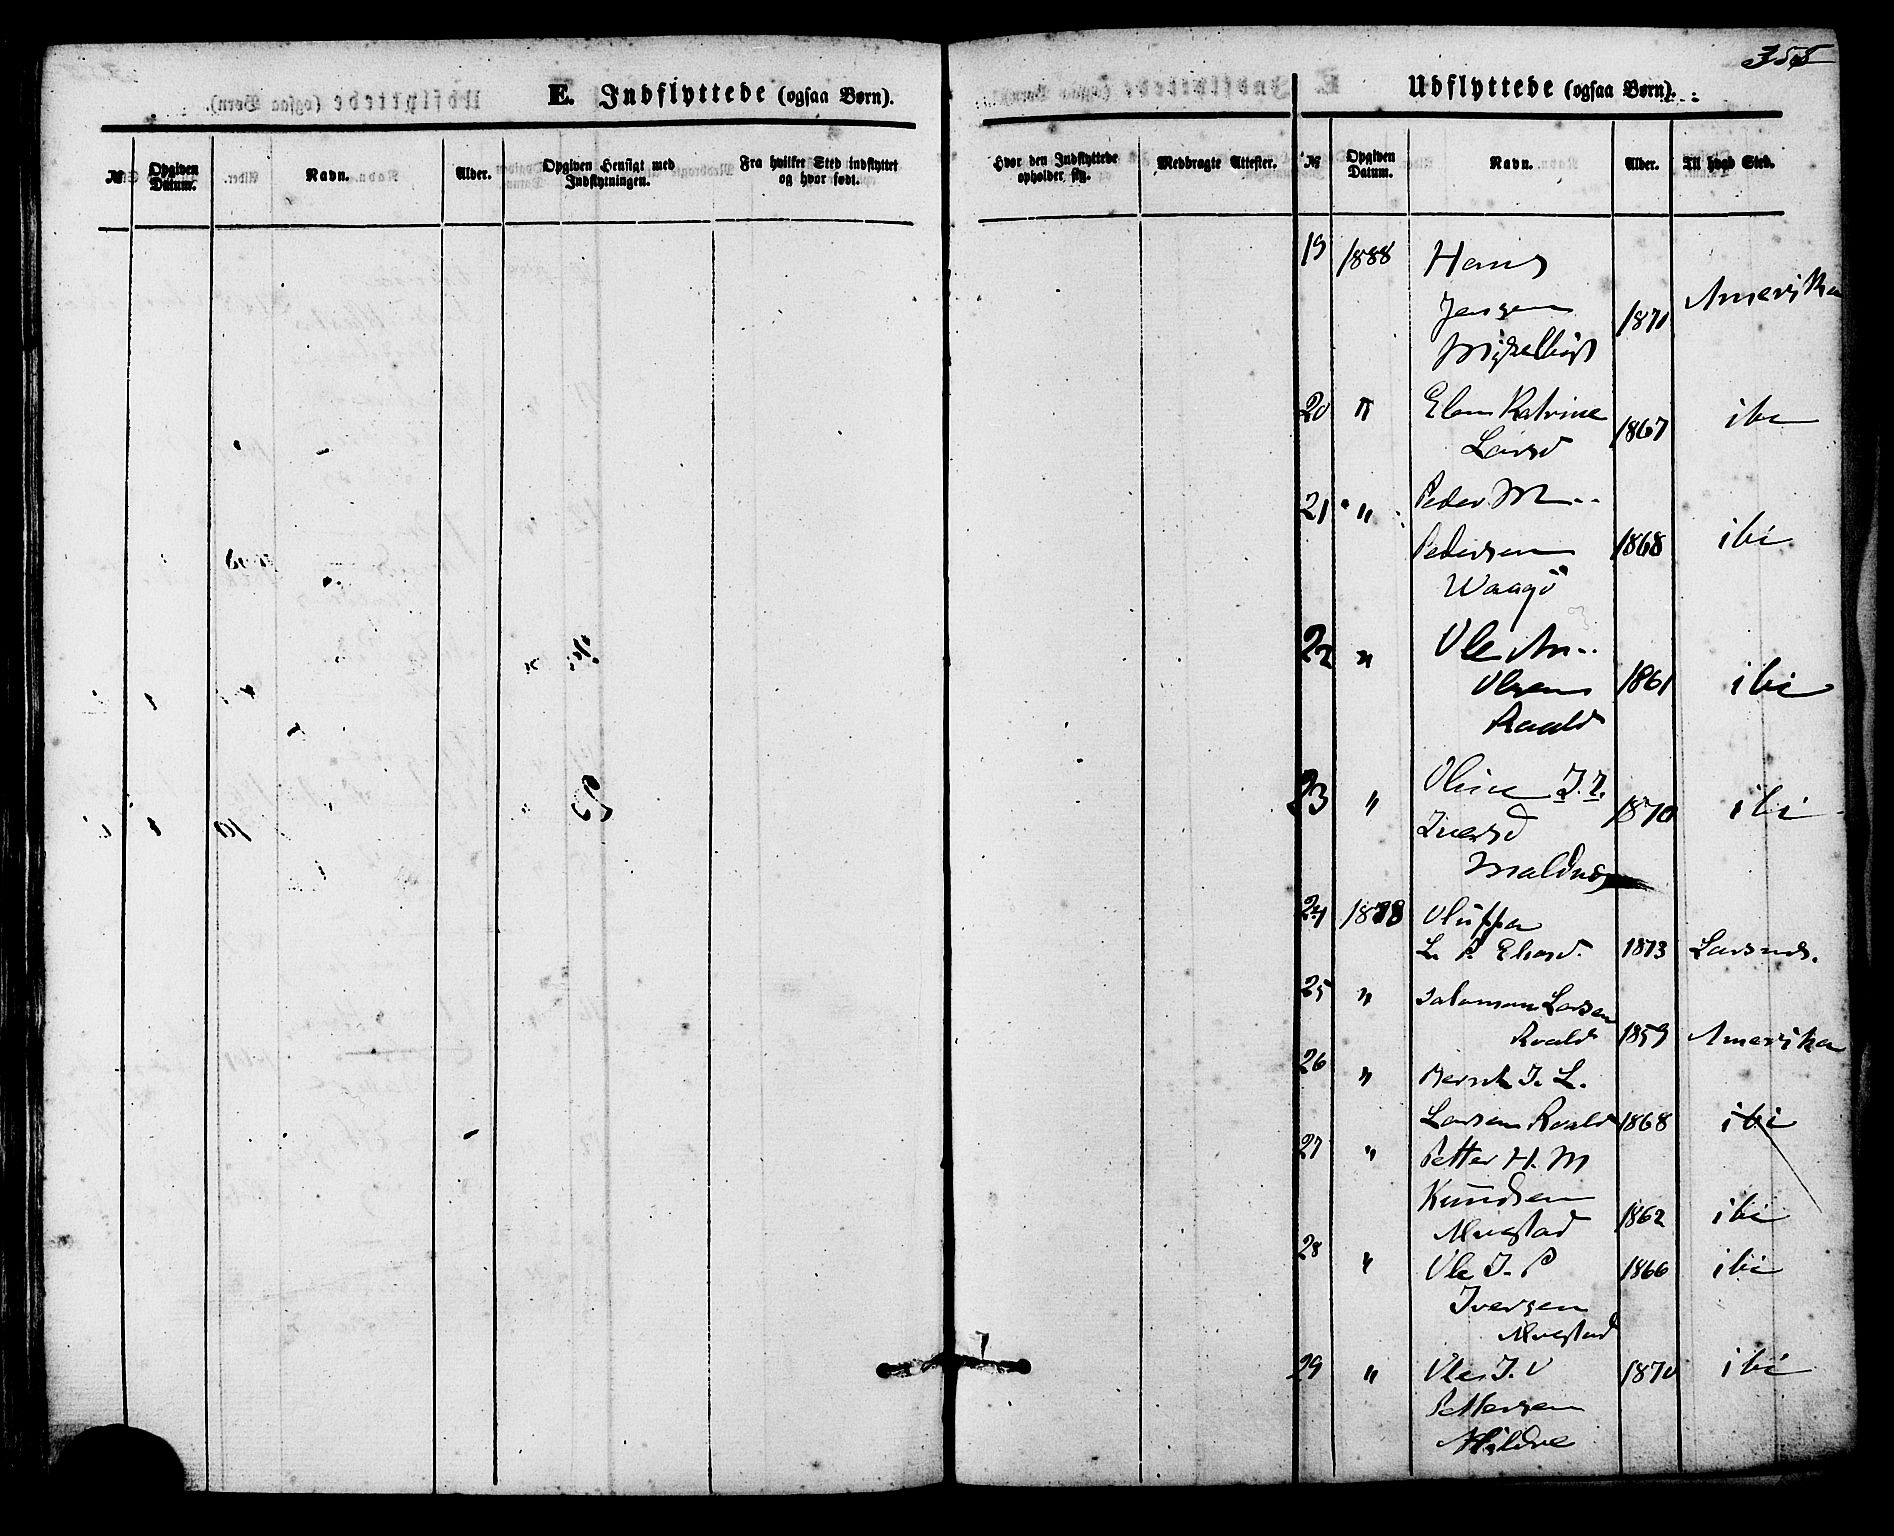 355
E. Indflyttede (ogsaa Børn).
Udflyttede (ogsaa Børn).
№ Opgiven Datum. Navn. Alder. Opgiven Hensigt med Indflytningen. Fra hvilket Sted indflyttet og hvor født. Hvor den Indflyttede opholder sig. Medbragte Attester. № Opgiven Datum. Navn. Alder. Til hvad Sted.
19 1888 Hans
Jensen 1871 Amerika
20 " Elen Katrine 1867 ibi
Larsd
21 " Peder M
Pedersen 1868 ibi
Waagö
22 " Ole An
Olsen 1861 ibi
Roald
23 " Oline I. I. 1870 ibi
Iversd
24 1888
L. P. 1873 Larsnes.
25 " Salomon Larsen
Roald 1859 Amerika
26 " Bernt I. L.
Larsen Roald 1868 ibi
27 " Petter H. M
Knudsen 1862 ibi
Alvestad
28 " Ole I. P 1866 ibi
Iversen
Alvestad
29 " Ole I. O 1870 ibi
Pettersen